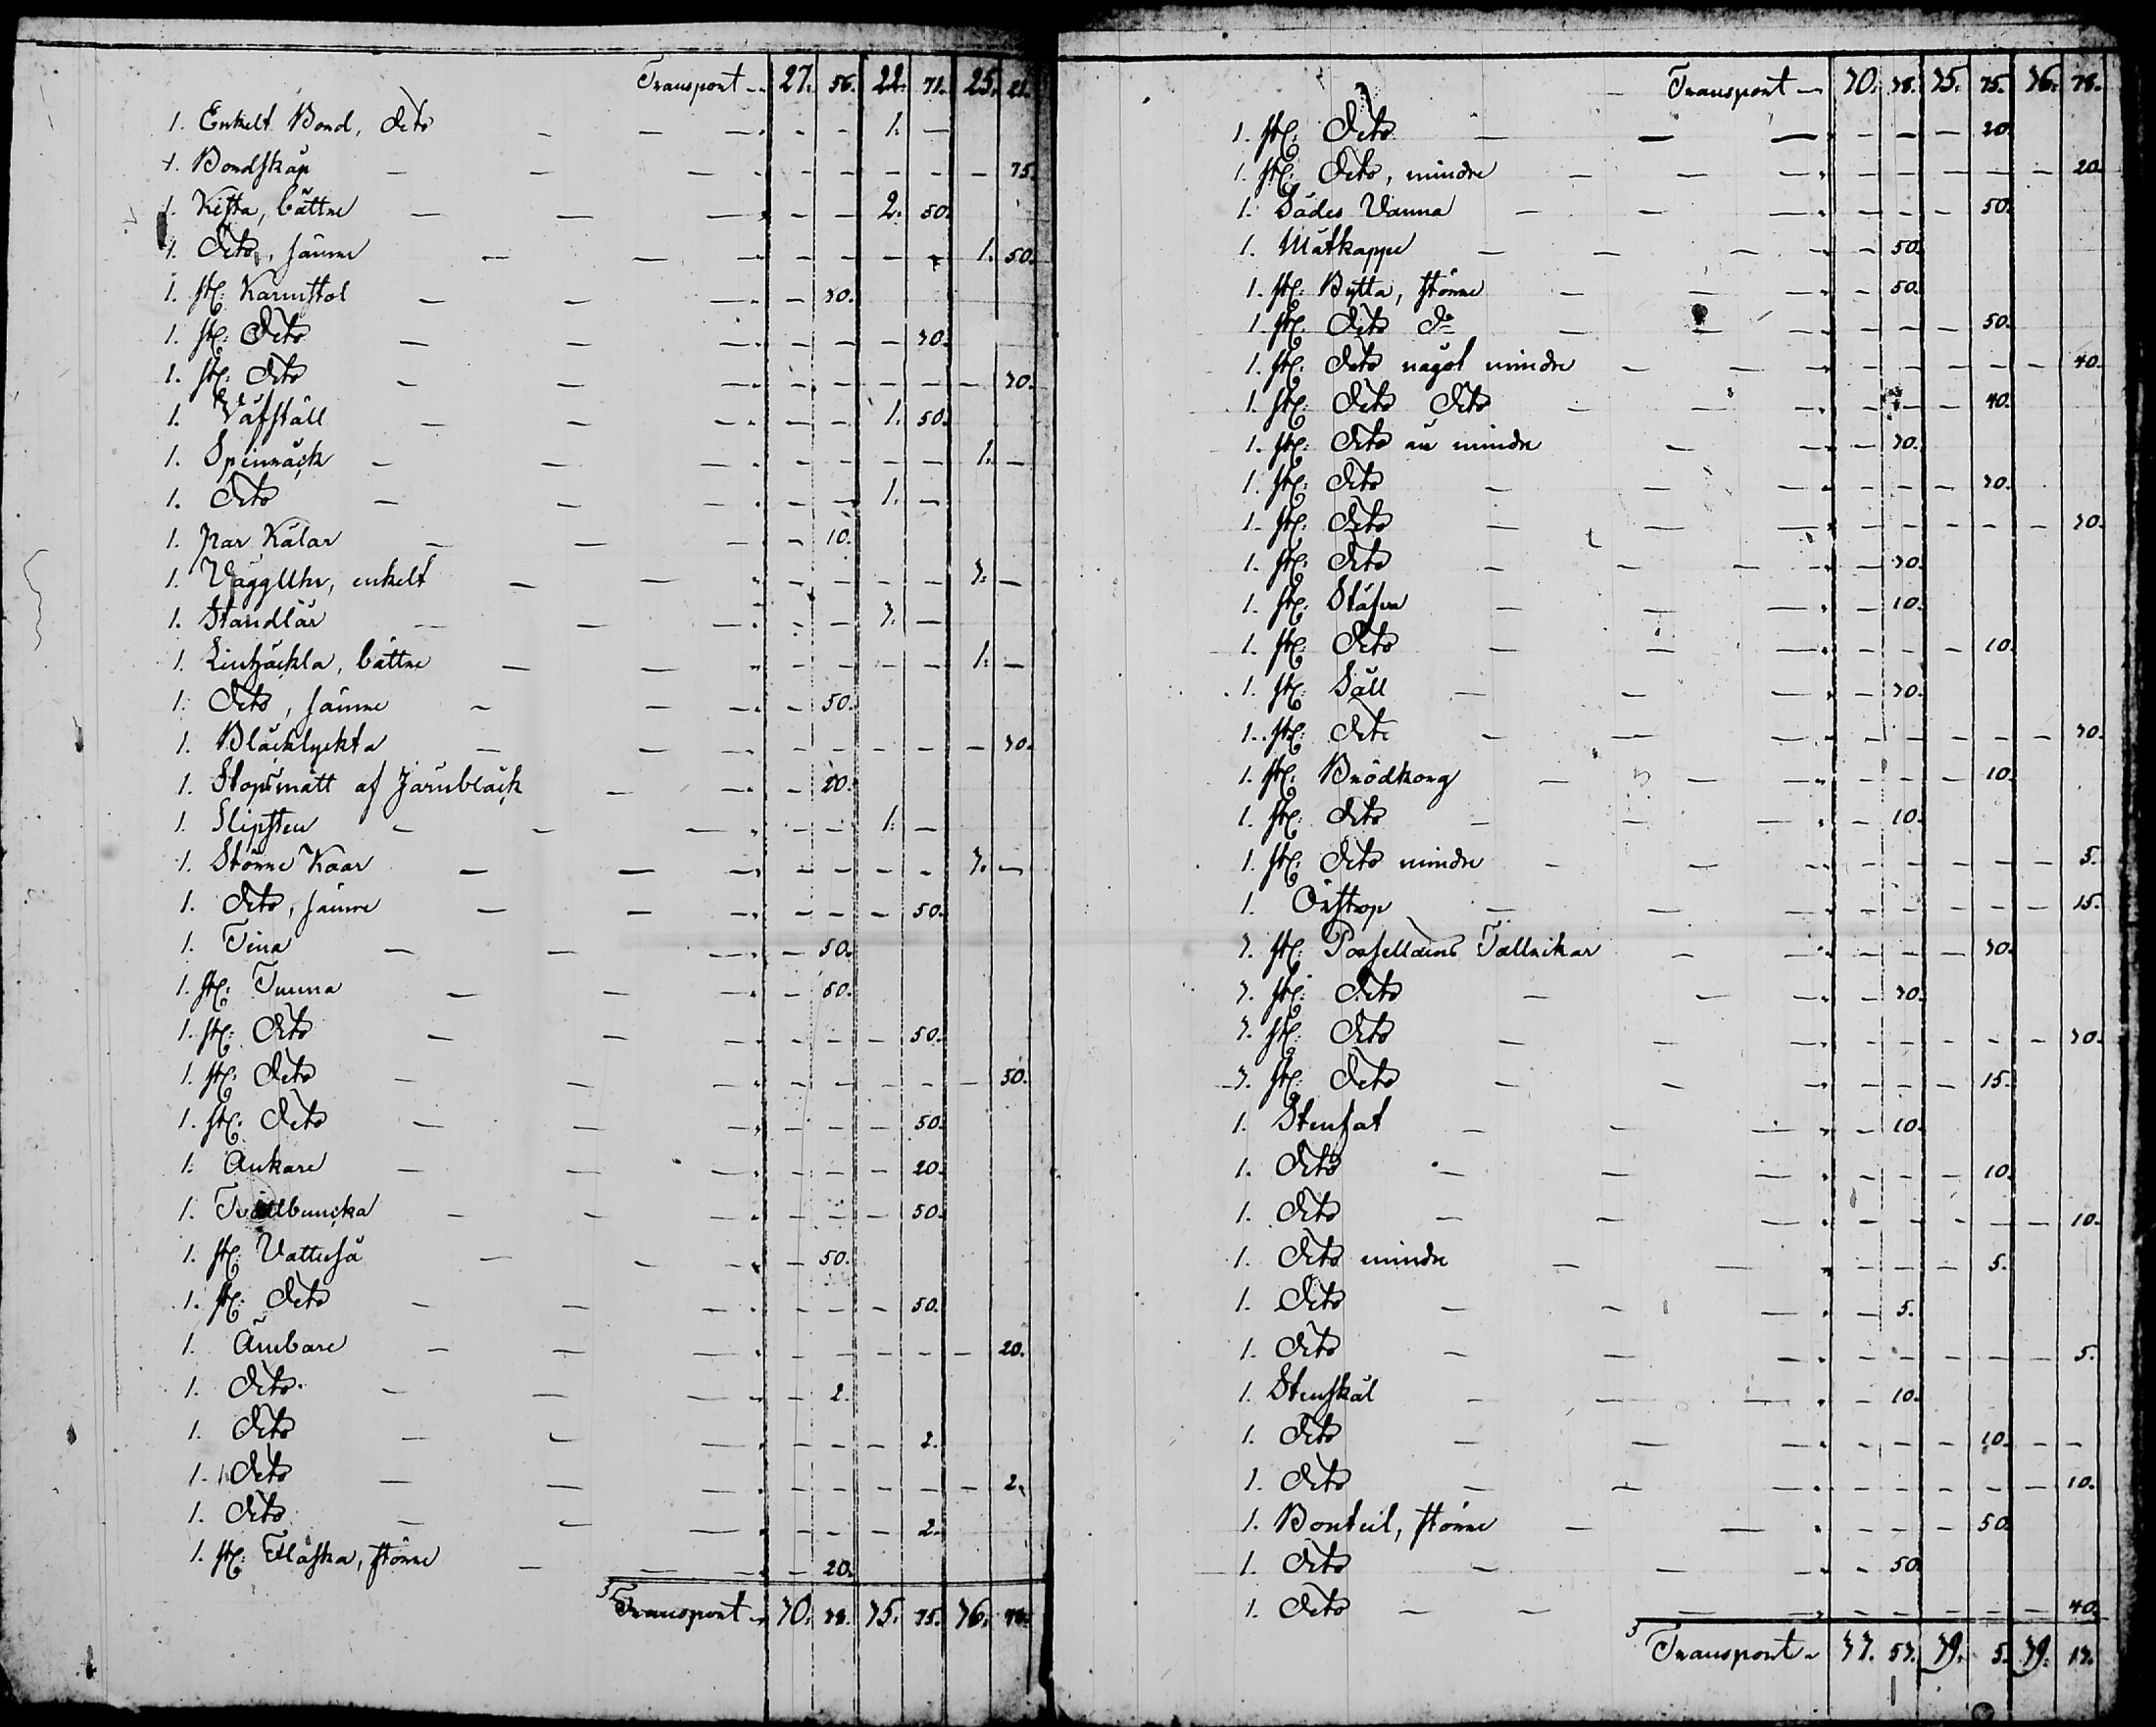 Transport 27. 56. 22. 71. 25. 21.
1. Enkelt Bord, dito 1. —
1. Bordskåp 75.
1. Kista, bättre 2. 50.
1. Dito, sämre 1. 50.
1. st: Karmstol 30.
1. st: Dito 30.
1. st: Dito 30.
1. Väfställ 1. 50.
1. Spinråck 1. —
1. Dito 1. —
1. par Kålar 10.
1. VäggUhr, enkelt 3. —
1. Standlår 3. —
1. Linhäckla, bättre 1. —
1. Dito, sämre 50.
1. Bläcklyckta 30.
1. Stopsmått af Järnbläck 20.
1. Slipsten 1. —
1. Större Kaar 3. —
1. Dito, sämre 50.
1. Tina 50.
1. st: Tunna 50.
1. st: Dito 50.
1. st: Dito 50.
1. st: Dito 50.
1. Ankare 20.
1. buncka 50.
1. st: Vattuså 50.
1. st: Dito 50.
1. Ämbare 20.
1. Dito 2.
1. Dito 2.
1. Dito 2.
1. Dito 2.
1. st: Flaska, större 20.
Transport 30. 38. 35. 75. 36. 78.
Transport 30. 38. 35. 75. 36. 78.
1. st: Dito 20.
1. st: Dito, mindre 20.
1. Sädes Vanna 50.
1. Måtkappe 50.
1. st: Bytta, större 50.
1. st: Dito do 50.
1. st: Dito något mindre 40.
1. st: Dito Dito 40.
1. st: Dito än mindre 30.
1. st: Dito 30.
1. st: Dito 30.
1. st: Dito 30.
1. st: Stäfva 10.
1. st: Dito 10.
1. st: Såll 30.
1. st: Dito 30.
1. st: Brödkorg 10.
1. st: Dito 10.
1. st: Dito mindre 5.
1. Öhstop 15.
3. st: Porsellains Tallrikar 30.
3. st: Dito 30.
3. st: Dito 30.
3. st: Dito 15.
1. Stenfat 10.
1. Dito 10.
1. Dito 10.
1. Dito mindre 5.
1. Dito 5.
1. Dito 5.
1. Stenskål 10.
1. Dito 10.
1. Dito 10.
1. Bouteil, större 50.
1. Dito 50.
1. Dito 40.
Transport 33. 53. 39. 5. 39. 13.